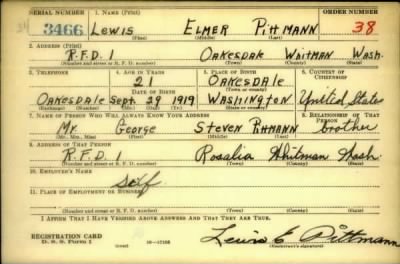 SERIAL NUMBER 1. NAME (Print) ORDER NUMBER
3466 LEWIS ELMER PITTMANN 38
(First) (Middle) (Last)
2. ADDRESS (Print)
R.F.D. 1 OAKESDALE WHITMAN WASH.
(Number and street or R. F. D. number) (Town) (County) (State)
3. TELEPHONE 4. AGE IN YEARS 5. PLACE OF BIRTH 6. COUNTRY OF CITIZENSHIP
21 OAKESDALE
DATE OF BIRTH (Town or county)
OAKESDALE Sept. 29 1919 WASHINGTON United States
(Exchange) (Number) (Mo.) (Day) (Yr.) (State or country)
7. NAME OF PERSON WHO WILL ALWAYS KNOW YOUR ADDRESS 8. RELATIONSHIP OF THAT PERSON
Mr. George Steven Pittmann brother
(Mr., Mrs., Miss) (First) (Middle) (Last)
9. ADDRESS OF THAT PERSON
R.F.D. 1 Rosalia Whitman Wash.
(Number and street or R. F. D. number) (Town) (County) (State)
10. EMPLOYER'S NAME
self
11. PLACE OF EMPLOYMENT OR BUSINESS
(Number and street or R. F. D. number) (Town) (County) (State)
I AFFIRM THAT I HAVE VERIFIED ABOVE ANSWERS AND THAT THEY ARE TRUE.
REGISTRATION CARD
D. S. S. Form 1 16-17105 Lewis E Pittmann
(Registrant's signature)